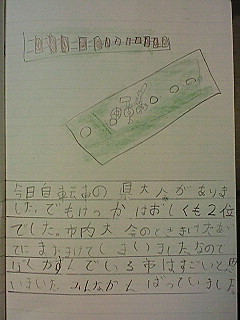 今日自転車の県大会がありま
した。でもけっかはおしくも2位
でした。市内大会のときまけたあい
てにまたまけてしまいましたなので
んでいる市はすごいと思
いました。みんながんばっていました